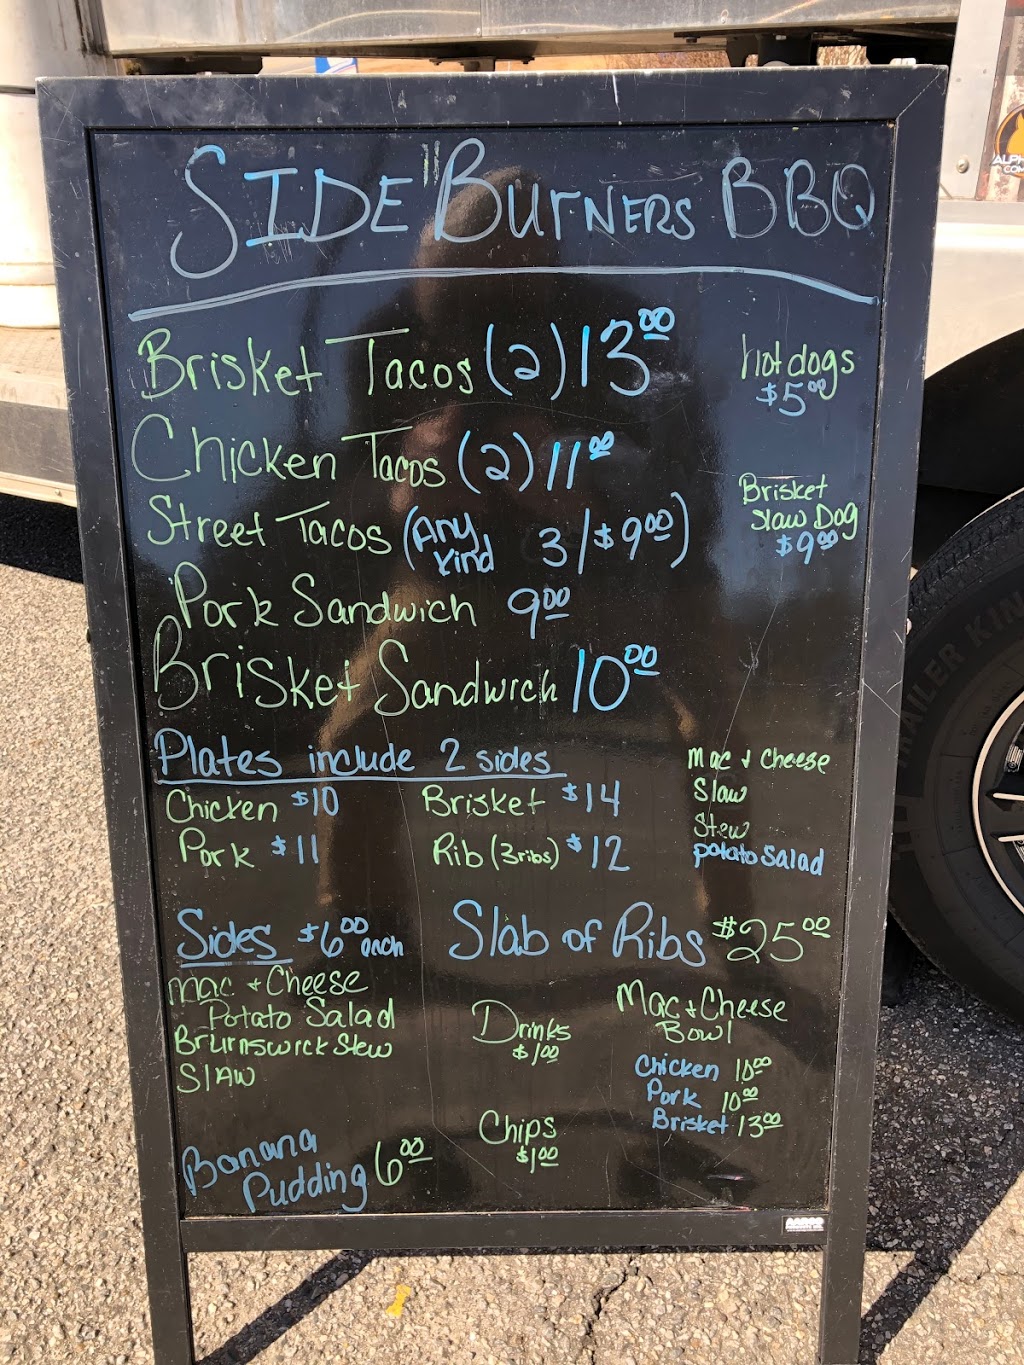 SIDE "BURNERS BBQ
Brisket Tacos (2) 13.00
Hotdogs
$5.00
Chicken Tacos (2) 11.00
Brisket
Slaw Dog
$9.00
Street Tacos (Any Kind 3/$9.00)
Pork Sandwich 9.00
Brisket Sandwich 10.00
Plates include 2 sides
Chicken $10 Brisket $14
Pork $11 Rib (3ribs) $12
Mac + Cheese
Slaw
Stew
potato Salad
Sides $6.00 each
Mac + Cheese
Potato Salad
Brurnswick Stew
SLAW
Slab of Ribs $25.00
Drinks
$1.00
Chips
$1.00
Mac + Cheese
Bowl
Chicken 10.00
Pork 10.00
Brisket 13.00
Banana
Pudding 6.00
TRAILER KIN
ALPH
COM